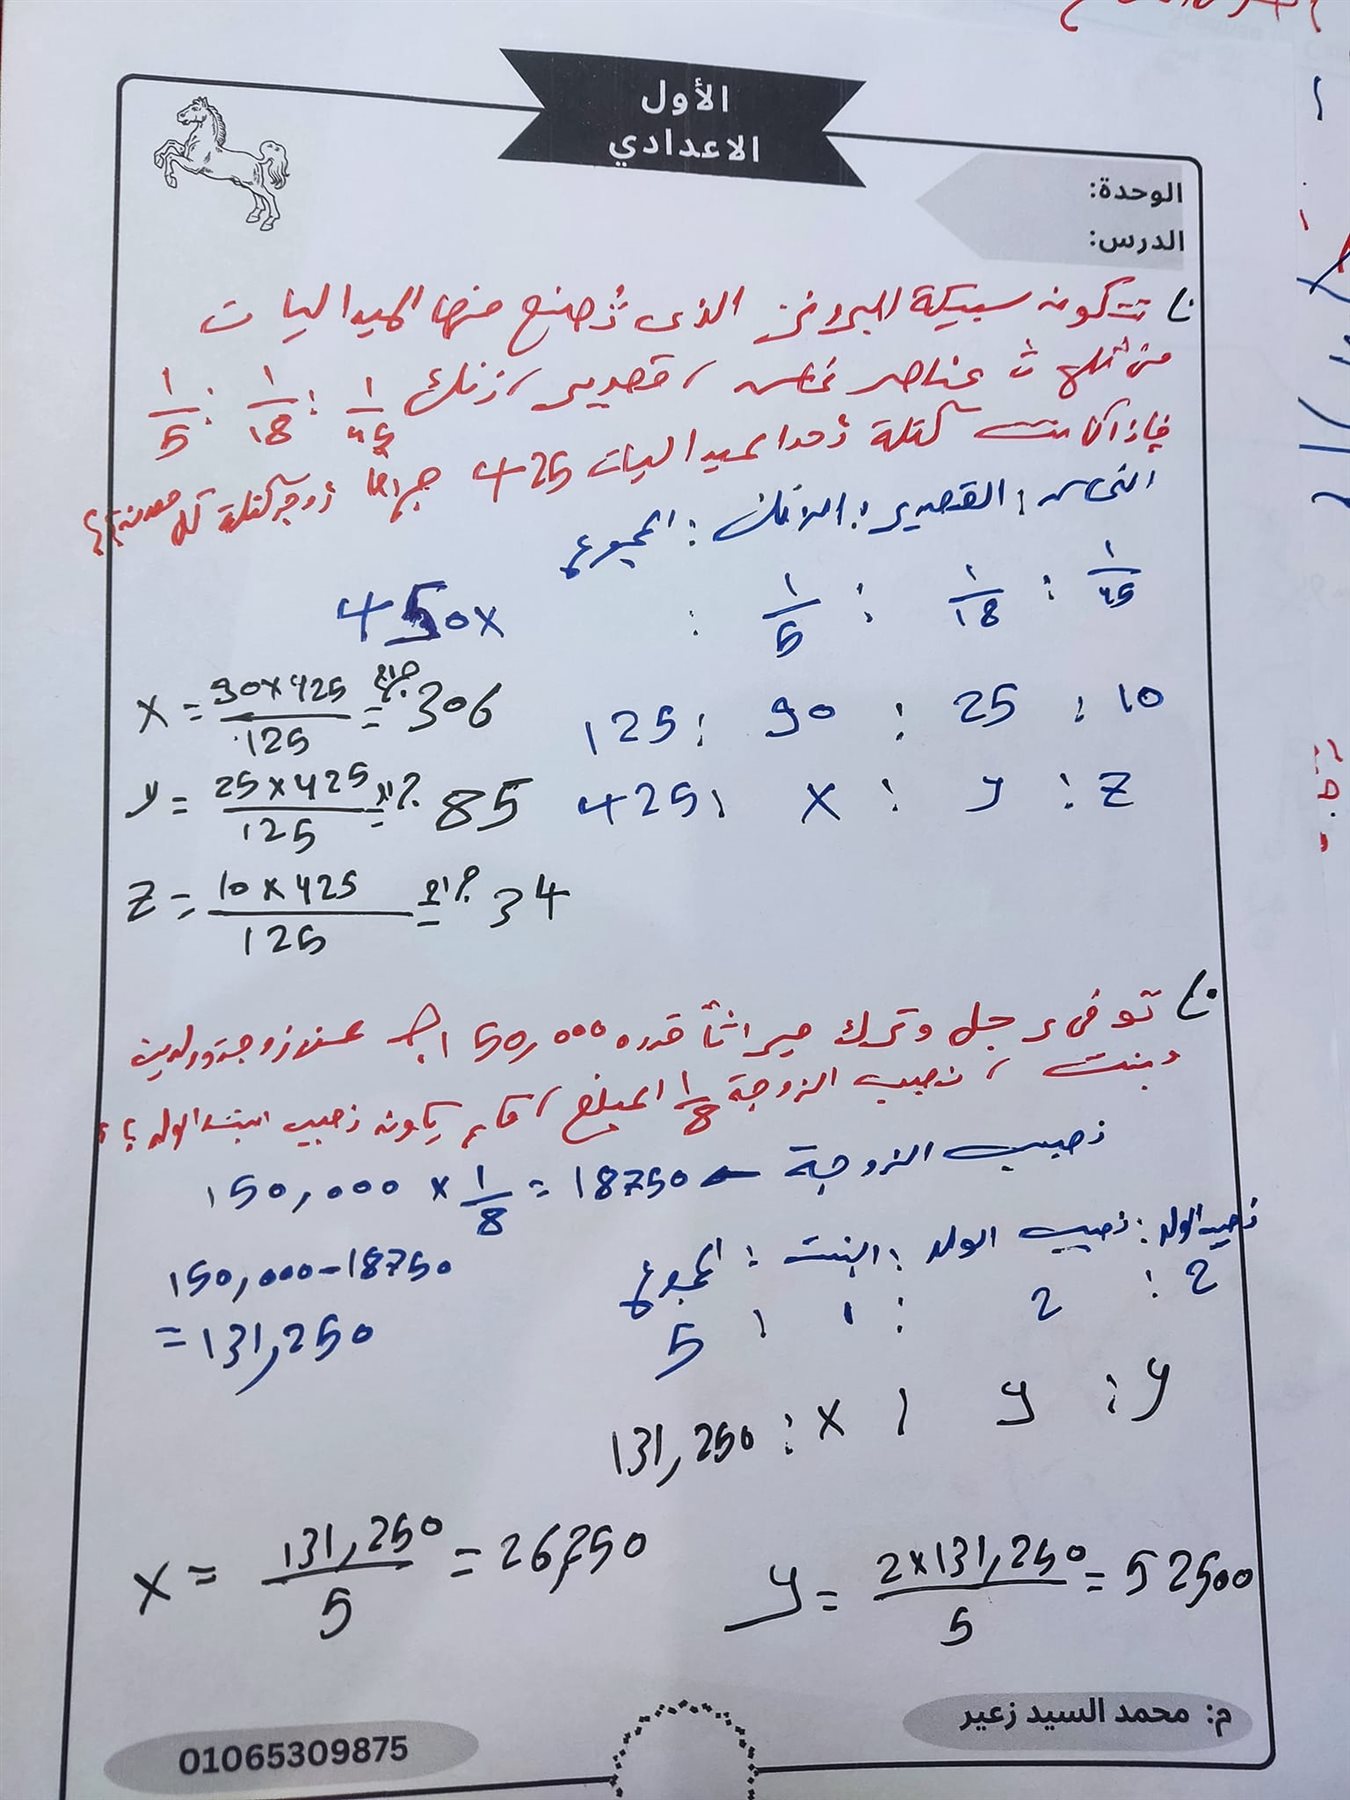 الأول
الاعدادي
الوحدة:
الدرس:
تتكون سبيكة البرونز الذى تُصنع منها الميداليات
من ثلاث عناصر نحاس، قصدير، زنك 1/45 : 1/18 : 1/5
فإذا كانت كتلة أحد الميداليات 425 جرامًا أوجد كتلة كل معدن؟؟
النحاس : القصدير : الزنك : المجموع
1/45 : 1/18 : 1/5 :
450x
10 : 25 : 90 : 125
Z : y : x : 425
x = 90x425/125 = 306 جرام
y = 25x425/125 = 85 جرام
Z = 10x425/125 = 34 جرام
توفى رجل وترك ميراثاً قدره 150,000 جـ عن زوجة وولدين
وبنت، نصيب الزوجة 1/8 المبلغ، فكم يكون نصيب البنت، الولد؟؟
نصيب الزوجة
150,000 x 1/8 = 18750
نصيب الولد : نصيب الولد : البنت : المجموع
2 : 2 : 1 : 5
150,000-18750
= 131,250
y : y : x : 131,250
x = 131,250/5 = 26,250
y = 2x131,250/5 = 52500
م: محمد السيد زعير
01065309875